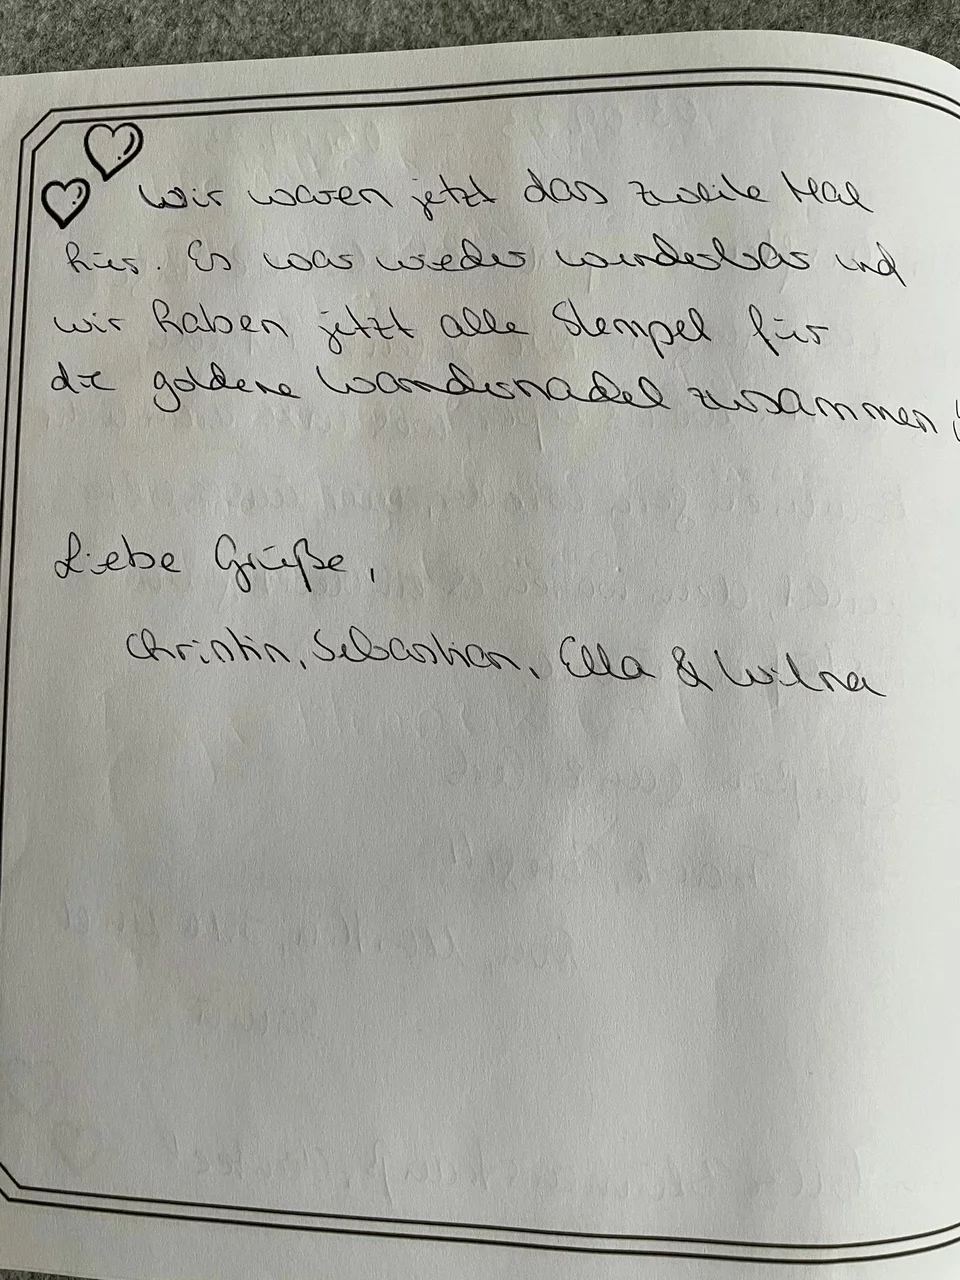 Wir waren jetzt das zweite Mal
hier. Es war wieder wunderbar und
wir haben jetzt alle Stempel für
die goldene Wandernadel zusammen!
Liebe Grüße,
Christin, Sebastian, Ella & Wilma